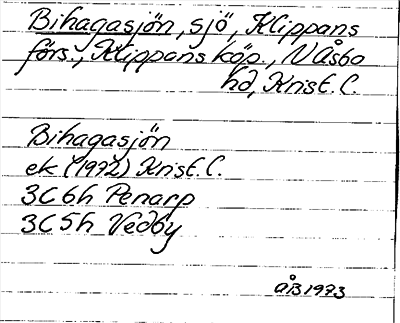 Bihagasjön, sjö, Klippans
förs., Klippans köp., N Åsbo
hd, Krist. L.
Bihagasjön
ek (1972) Krist. L.
3C6h Penarp
3C5h Vedby
ÅB 1973